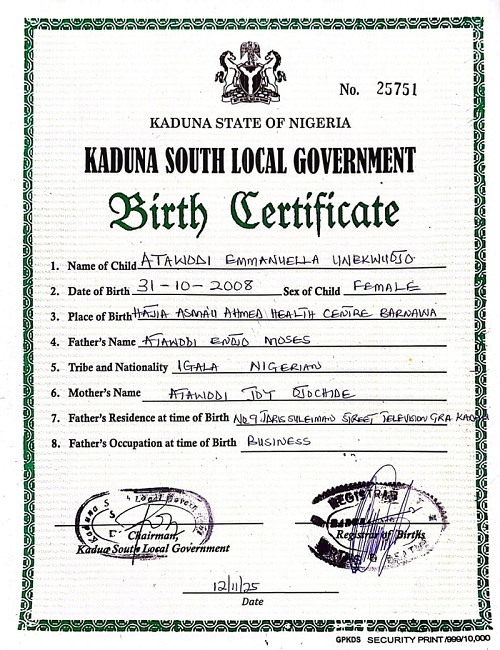 No. 25751
KADUNA STATE OF NIGERIA
KADUNA SOUTH LOCAL GOVERNMENT
Birth Certificate
1. Name of Child ATAWODI EMMANUELLA UNEKWUOJO
2. Date of Birth 31-10-2008 Sex of Child FEMALE
3. Place of Birth HAJIA ASMA'U AHMED HEALTH CENTRE BARNAWA
4. Father's Name ATAWODI ENEJO MOSES
5. Tribe and Nationality IGALA NIGERIAN
6. Mother's Name ATAWODI JOY OJOCHIDE
7. Father's Residence at time of Birth NO.9 IDRIS SULEIMAN STREET TELEVISION GRA KADUNA
8. Father's Occupation at time of Birth BUSINESS
Kaduna S Local Govern
Chairman,
Kaduna South Local Government
REGISTRAR
Registrar of Births
12/11/25
Date
GPKDS SECURITY PRINT/999/10,000